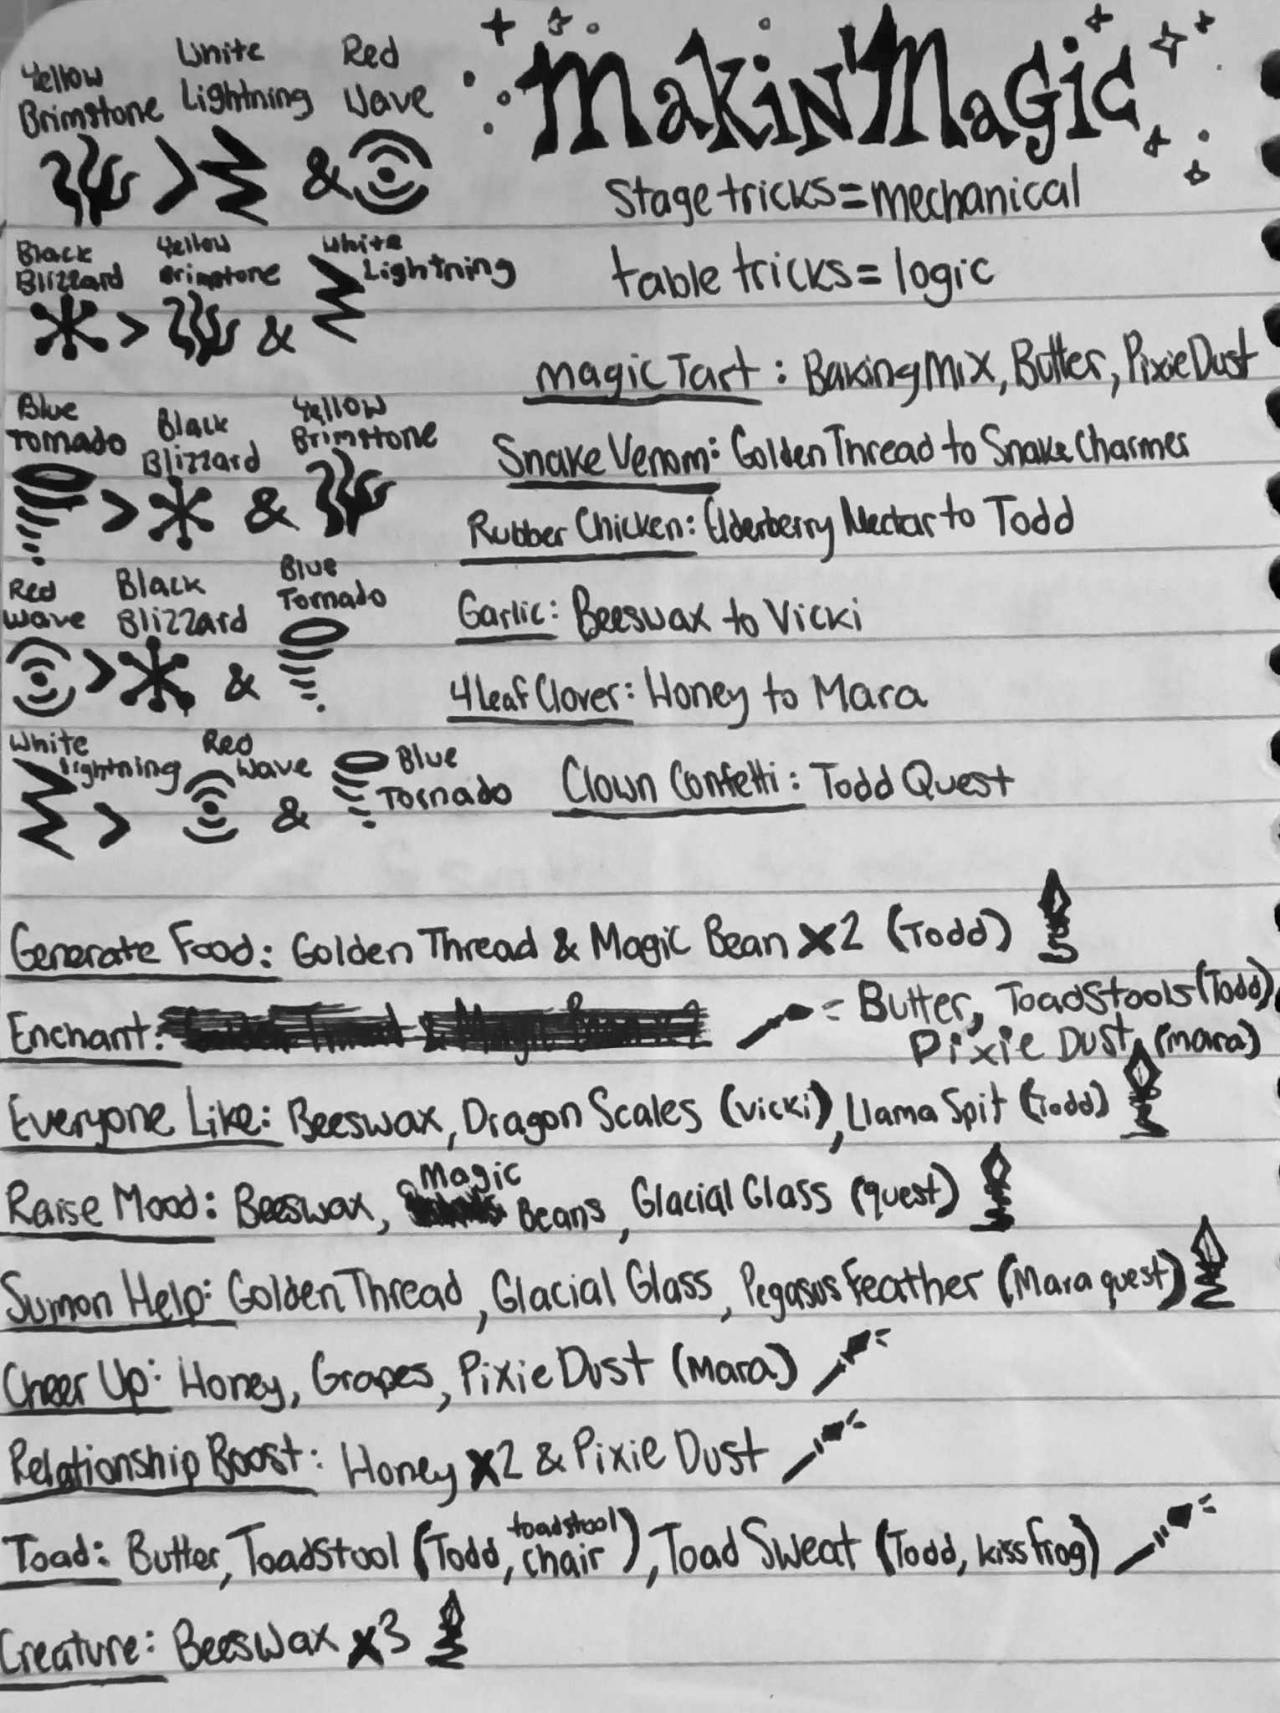 Makin' Magic
Yellow Brimstone > White Lightning & Red Wave
Stage tricks = mechanical
Black Blizzard > Yellow Brimstone & White Lightning
table tricks = logic
Magic Tart: Baking Mix, Butter, Pixie Dust
Blue Tornado > Black Blizzard & Yellow Brimstone
Snake Venom: Golden Thread to Snake Charmer
Rubber Chicken: Elderberry Nectar to Todd
Red Wave > Black Blizzard & Blue Tornado
Garlic: Beeswax to Vicki
4 Leaf Clover: Honey to Mara
White Lightning > Red Wave & Blue Tornado
Clown Confetti: Todd Quest
Generate Food: Golden Thread & Magic Bean x2 (Todd)
Enchant: = Butter, Toadstools (Todd)
Pixie Dust (Mara)
Everyone Like: Beeswax, Dragon Scales (Vicki), Llama Spit (Todd)
Raise Mood: Beeswax, Magic Beans, Glacial Glass (quest)
Sumon Help: Golden Thread, Glacial Glass, Pegasus Feather (Mara quest)
Cheer Up: Honey, Grapes, Pixie Dust (Mara)
Relationship Boost: Honey x2 & Pixie Dust
Toad: Butter, Toadstool (Todd, toadstool chair), Toad Sweat (Todd, kiss frog)
Creature: Beeswax x3